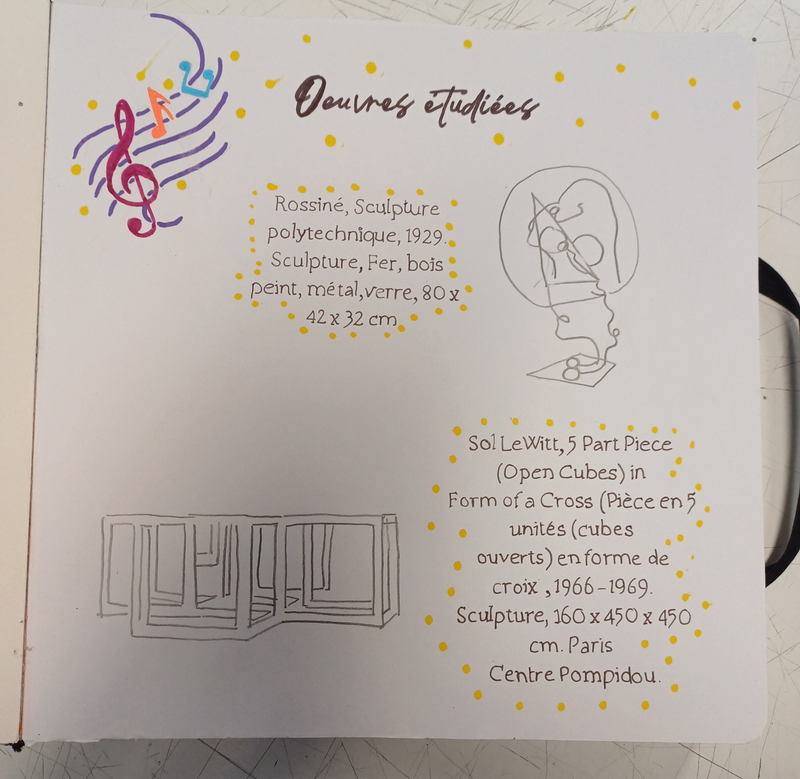 Oeuvres étudiées
Rossiné, Sculpture
polytechnique, 1929.
Sculpture, Fer, bois
peint, métal, verre, 80 x
42 x 32 cm
Sol LeWitt, 5 Part Piece
(Open Cubes) in
Form of a Cross (Pièce en 5
unités (cubes
ouverts) en forme de
croix , 1966-1969.
Sculpture, 160 x 450 x 450
cm. Paris
Centre Pompidou.